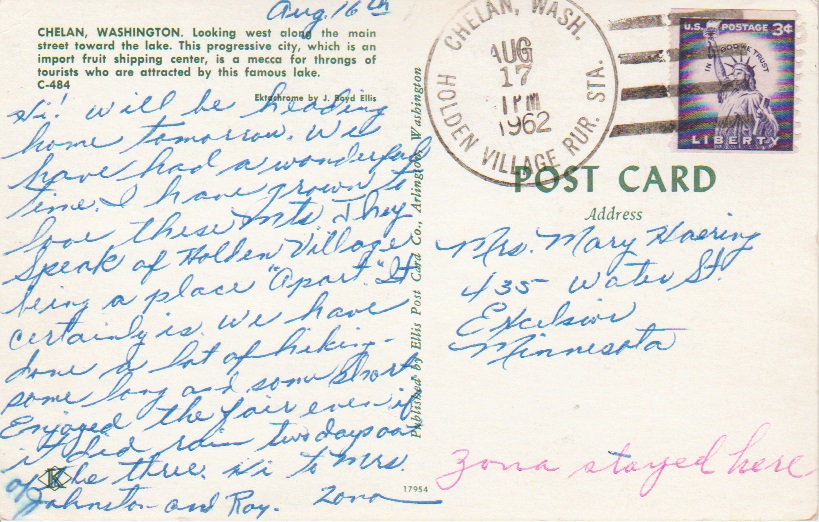 Aug. 16th
CHELAN, WASHINGTON. Looking west along the main
street toward the lake. This progressive city, which is an
import fruit shipping center, is a mecca for throngs of
tourists who are attracted by this famous lake.
C-484
Ektachrome by J. Boyd Ellis
Hi! Will be heading
home tomorrow. We
have had a wonderful
time. I have grown to
love these Mts. They
speak of Holden Village
being a place "Apart." It
certainly is. We have
done a lot of hiking -
some long and some short
Enjoyed the fair even if
it did rain two days out
of the three. Hi to Mrs.
Johnston and Ray. Zona
K
17954
Published by Ellis Post Card Co., Arlington, Washington
CHELAN, WASH.
AUG
17
1 PM
1962
HOLDEN VILLAGE RUR. STA.
U.S. POSTAGE 3¢
IN GOD WE TRUST
LIBERTY
POST CARD
Address
Mrs. Mary Haering
435 Water St.
Excelsior
Minnesota
Zona stayed here